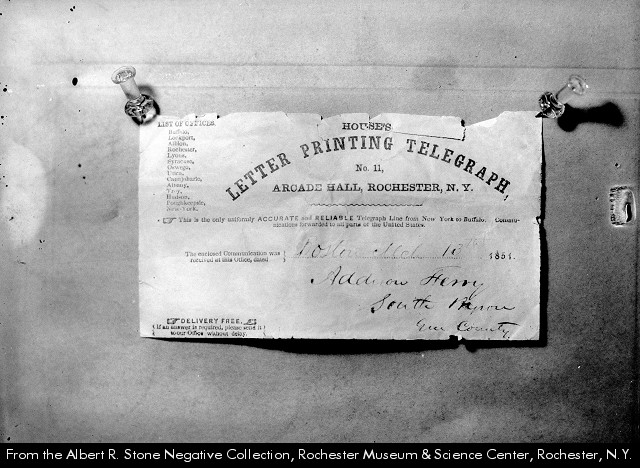 LIST OF OFFICES.
Buffalo,
Lockport,
Albion,
Rochester,
Lyons,
Syracuse,
Oswego,
Utica,
Canajoharie,
Albany,
Troy,
Hudson,
Poughkeepsie,
New-York.
HOUSE'S
LETTER PRINTING TELEGRAPH,
No. 11,
ARCADE HALL, ROCHESTER, N. Y.
☞ This is the only uniformly ACCURATE and RELIABLE Telegraph Line from New York to Buffalo. Commu-
nications forwarded to all parts of the United States.
The enclosed Communication was
received at this Office, dated
Boston Mch 1851.
Addison Henry
South Byron
Gen County
☞ DELIVERY FREE.
If an answer is required, please send it
to our Office without delay.
From the Albert R. Stone Negative Collection, Rochester Museum & Science Center, Rochester, N.Y.